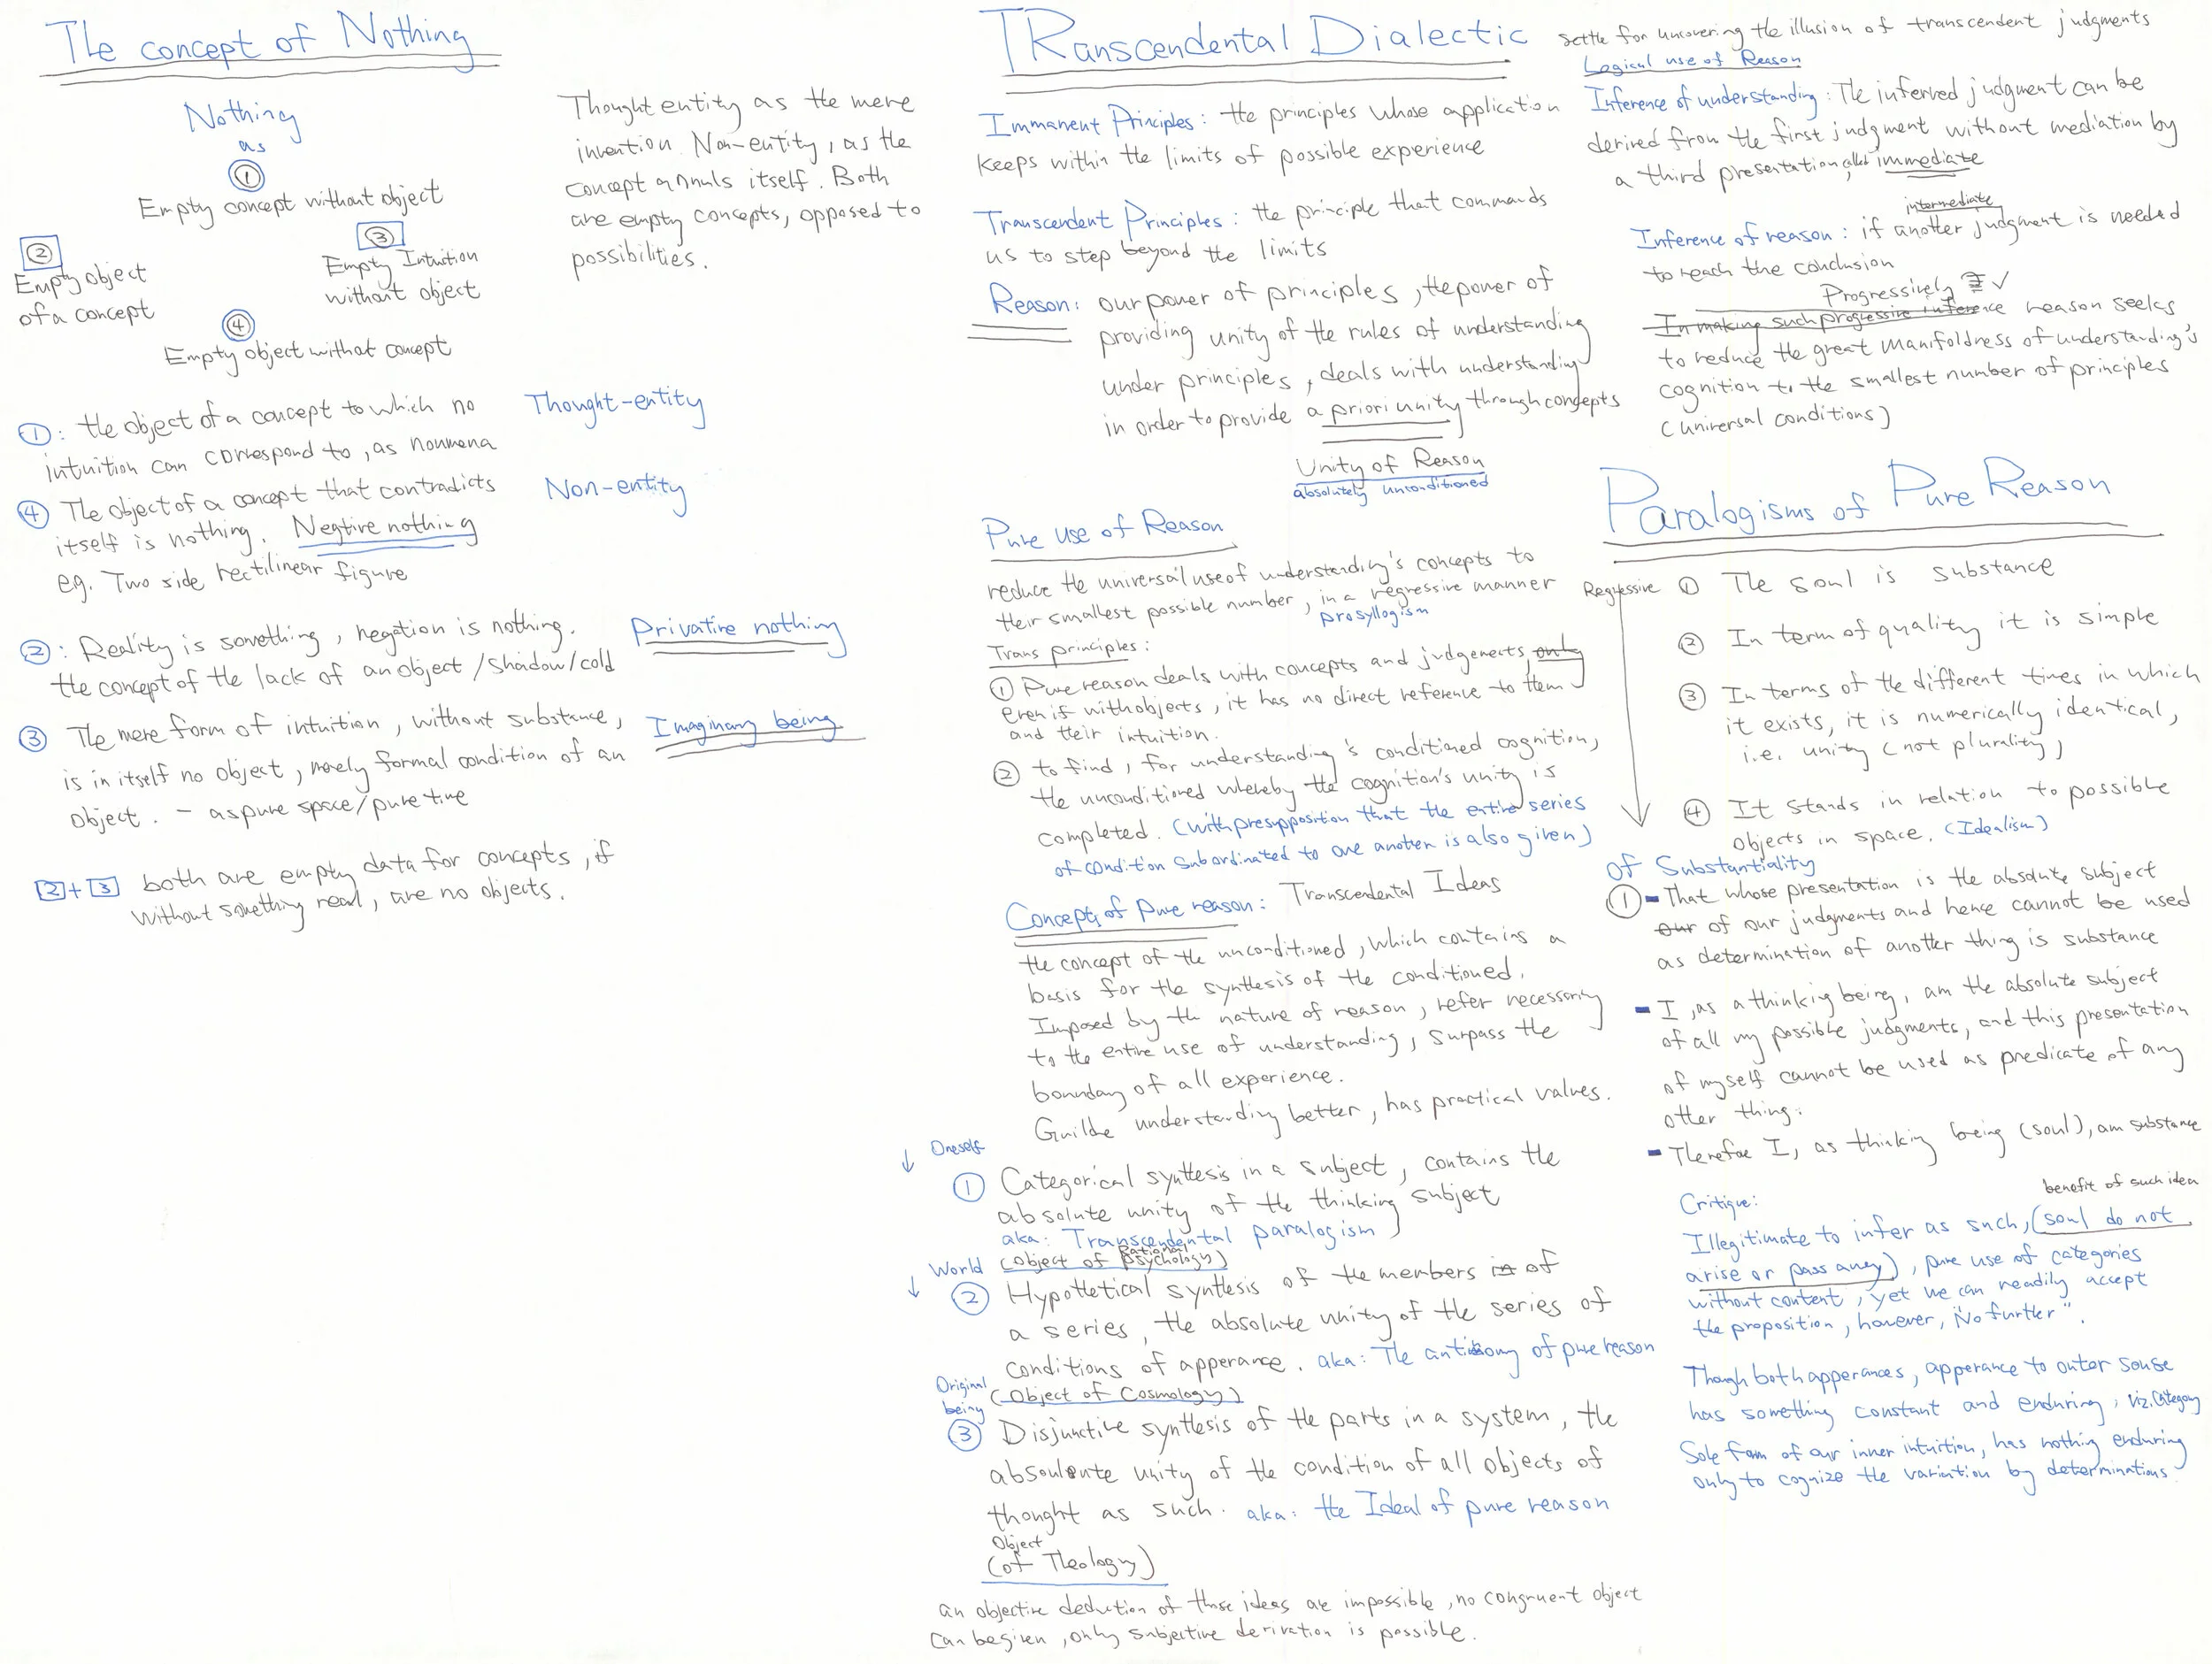 The concept of Nothing
Nothing
as
①
Empty concept without object
②
Empty object
of a concept
③
Empty Intuition
without object
④
Empty object without concept
Thought entity as the mere
invention. Non-entity, as the
concept annuls itself. Both
are empty concepts, opposed to
possibilities.
①: the object of a concept to which no
intuition can correspond to, as noumena
Thought-entity
④ The object of a concept that contradicts
itself is nothing. Negtive nothing
eg. Two side rectilinear figure
Non-entity
②: Reality is something, negation is nothing.
the concept of the lack of an object/shadow/cold
Privative nothing
③ The mere form of intuition, without substance,
is in itself no object, merely formal condition of an
object. - as pure space/pure time
Imaginary being
2+3 both are empty data for concepts, if
without something real, are no objects.
TRanscendental Dialectic
Immanent Principles: the principles whose application
keeps within the limits of possible experience
Transcendent Principles: the principle that commands
us to step beyond the limits
Reason: our power of principles, the power of
providing unity of the rules of understanding
under principles, deals with understanding
in order to provide a priori unity through concepts
Unity of Reason
absolutely unconditioned
Pure use of Reason
reduce the universal use of understanding's concepts to
their smallest possible number, in a regressive manner
prosyllogism
Trans principles:
① Pure reason deals with concepts and judgements, only
even if with objects, it has no direct reference to them
and their intuition.
② to find, for understanding's conditioned cognition,
the unconditioned whereby the cognition's unity is
completed. (with presupposition that the entire series
of condition subordinated to one another is also given)
Concepts of pure reason: Transcendental Ideas
the concept of the unconditioned, which contains a
basis for the synthesis of the conditioned.
Imposed by the nature of reason, refer necessarily
to the entire use of understanding, surpass the
boundary of all experience.
Guilde understanding better, has practical values.
↓ Oneself
① Categorical synthesis in a subject, contains the
absolute unity of the thinking subject
aka: Transcendental paralogism
(object of Rational Psychology)
World
↓
② Hypothetical synthesis of the members in of
a series, the absolute unity of the series of
conditions of apperance. aka: The antinomy of pure reason
(Object of Cosmology)
Original
being
③ Disjunctive synthesis of the parts in a system, the
absoulute unity of the condition of all objects of
thought as such. aka: the Ideal of pure reason
Object
(of Theology)
an objective deduction of those ideas are impossible, no congruent object
can be given, only subjective derivation is possible.
settle for uncovering the illusion of transcendent judgments
Logical use of Reason
Inference of understanding: The inferred judgment can be
derived from the first judgment without mediation by
a third presentation, called immediate
intermediate
Inference of reason: if another judgment is needed
to reach the conclusion
Progressively ✓
In making such progressive inference reason seeks
to reduce the great manifoldness of understanding's
cognition to the smallest number of principles
(universal conditions)
Paralogisms of Pure Reason
Regressive ① The soul is substance
② In term of quality it is simple
③ In terms of the different times in which
it exists, it is numerically identical,
i.e. unity (not plurality)
④ It stands in relation to possible
objects in space. (Idealism)
Of Substantiality
① - That whose presentation is the absolute subject
our of our judgments and hence cannot be used
as determination of another thing is substance
- I, as a thinking being, am the absolute subject
of all my possible judgments, and this presentation
of myself cannot be used as predicate of any
other thing.
- Therefore I, as thinking being (soul), am substance
benefit of such idea
Critique:
Illegitimate to infer as such, (soul do not
arise or pass away), pure use of categories
without content, yet we can readily accept
the proposition, however, "No further".
Though both apperances, apperance to outer sense
has something constant and enduring, viz. category
Sole form of our inner intuition, has nothing enduring
only to cognize the variation by determinations.